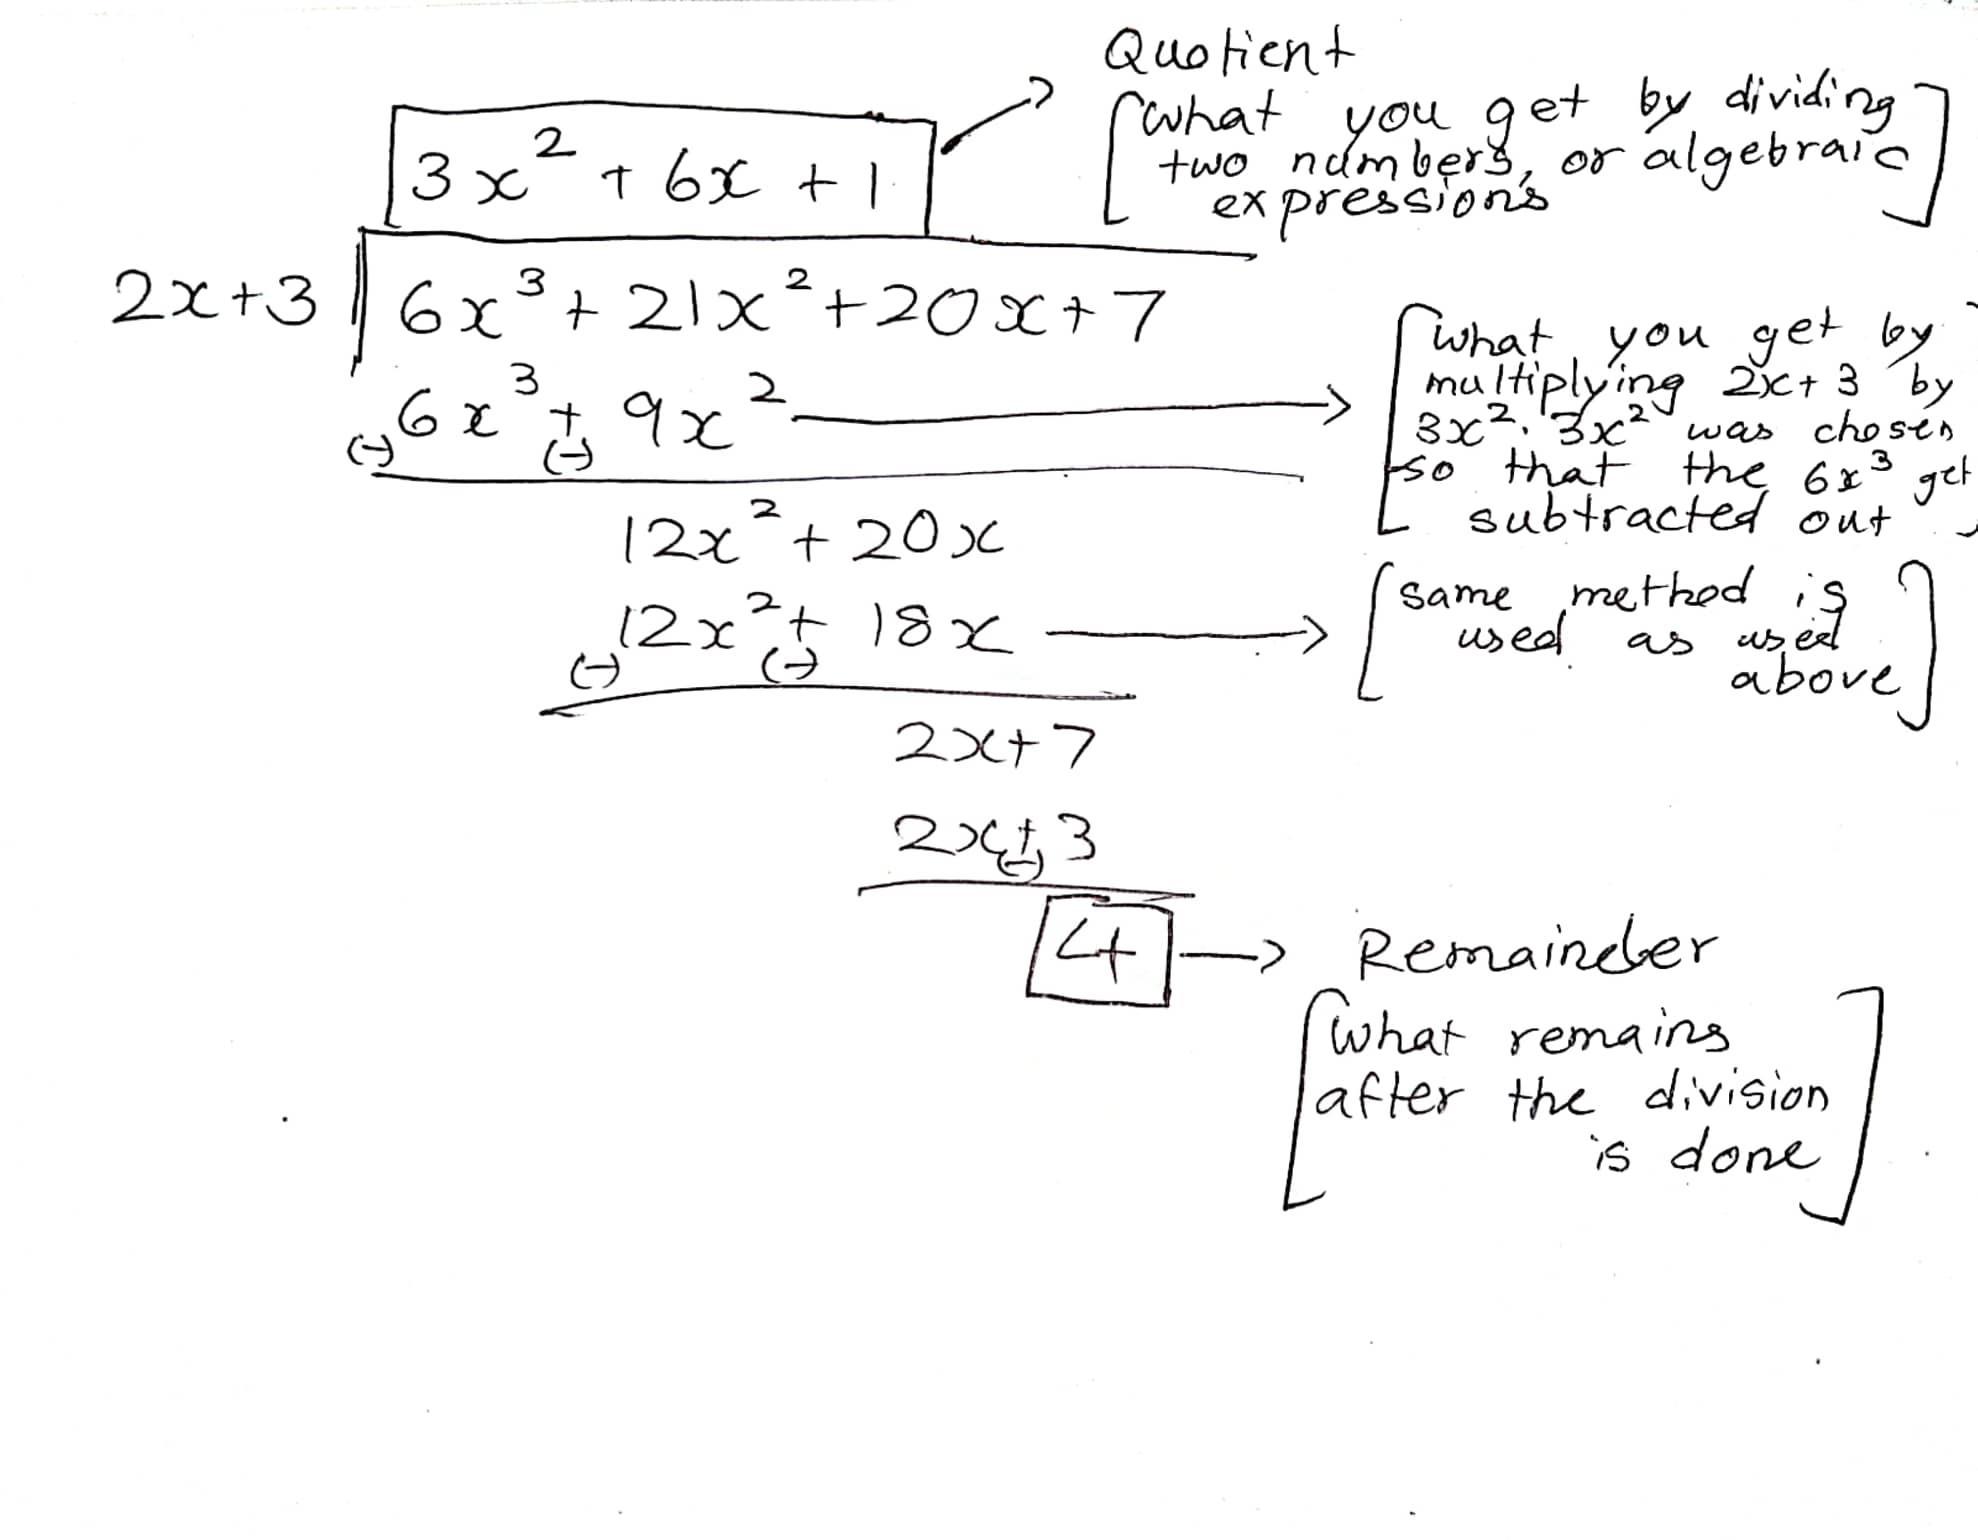 Quotient
[what you get by dividing
two numbers, or algebraic
expressions]
3x² + 6x + 1
2x+3 | 6x³ + 21x² + 20x + 7
6x³ + 9x²
(-) (-)
[what you get by
multiplying 2x+3 by
3x². 3x² was chosen
so that the 6x³ get
subtracted out]
12x² + 20x
12x² + 18x
(-) (-)
[same method is
used as used
above]
2x+7
2x+3
(-)
4 → Remainder
[what remains
after the division
is done]